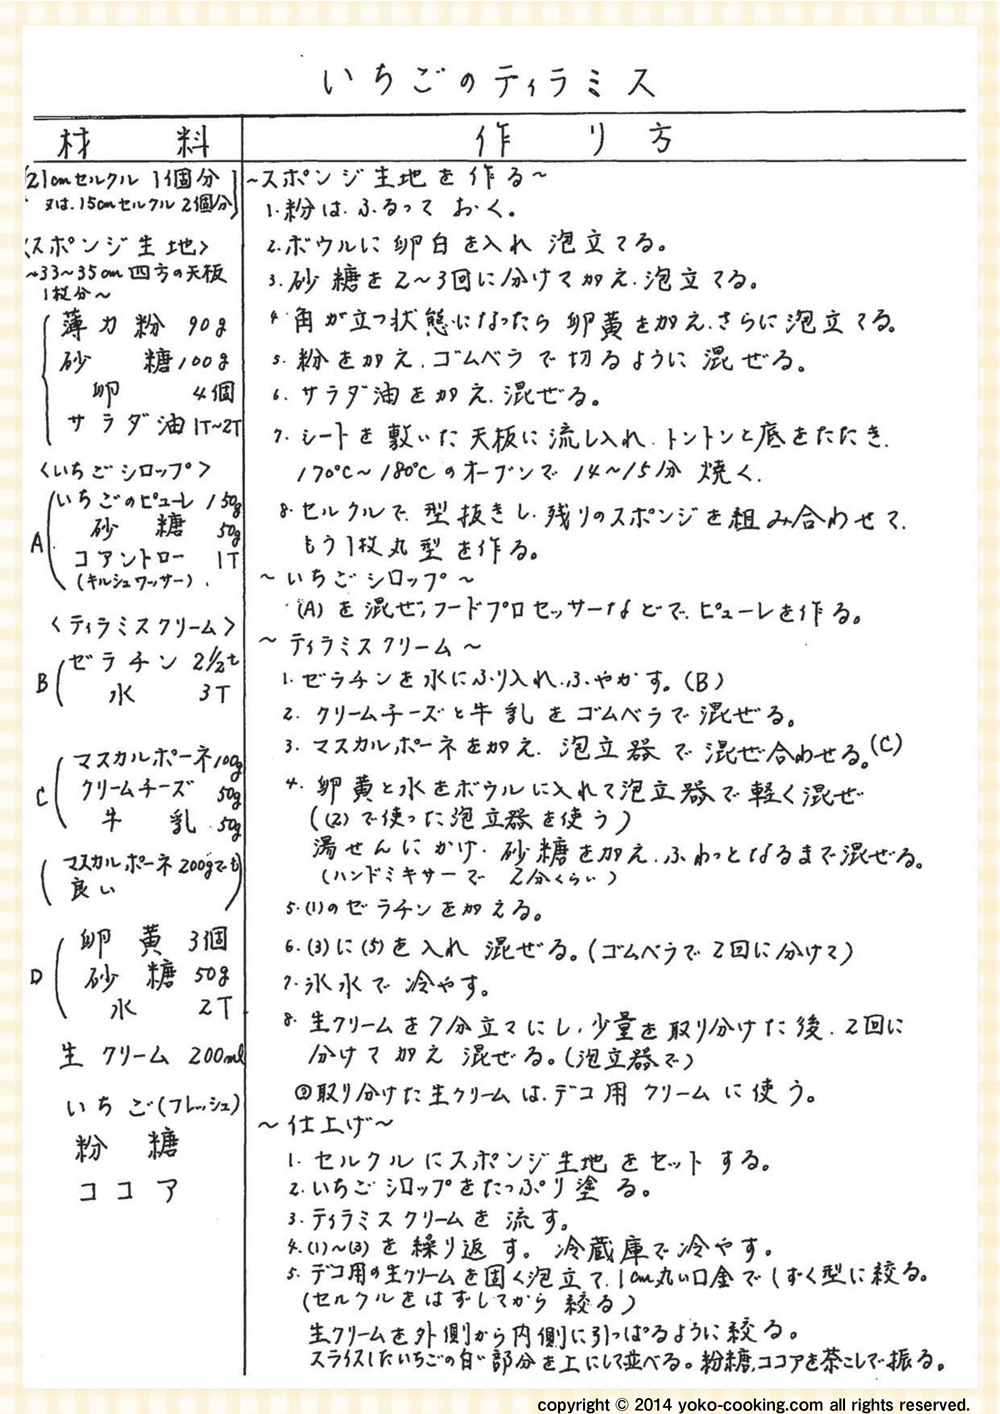 いちごのティラミス
材料
作り方
(21cmセルクル 1個分
又は、15cmセルクル 2個分)
〈スポンジ生地〉
～33～35cm四方の天板
1枚分～
薄力粉 90g
砂糖 100g
卵 4個
サラダ油 1T~2T
〈いちごシロップ〉
A
いちごのピューレ 150g
砂糖 50g
コアントロー 1T
(キルシュワッサー)
〈ティラミスクリーム〉
B
ゼラチン 2½t
水 3T
C
マスカルポーネ 100g
クリームチーズ 50g
牛乳 50g
(マスカルポーネ200gでも
良い)
D
卵黄 3個
砂糖 50g
水 2T
生クリーム 200ml
いちご(フレッシュ)
粉糖
ココア
～スポンジ生地を作る～
1.粉は、ふるっておく。
2.ボウルに卵白を入れ泡立てる。
3.砂糖を2～3回に分けて加え、泡立てる。
4.角が立つ状態になったら卵黄を加え、さらに泡立てる。
5.粉を加え、ゴムベラで切るように混ぜる。
6.サラダ油を加え、混ぜる。
7.シートを敷いた天板に流し入れ、トントンと底をたたき、
170℃～180℃のオーブンで14～15分焼く。
8.セルクルで、型抜きし、残りのスポンジを組み合わせて、
もう1枚丸型を作る。
～いちごシロップ～
(A)を混ぜ、フードプロセッサーなどで、ピューレを作る。
～ティラミスクリーム～
1.ゼラチンを水にふり入れ、ふやかす。(B)
2.クリームチーズと牛乳をゴムベラで混ぜる。
3.マスカルポーネを加え、泡立器で混ぜ合わせる。(C)
4.卵黄と水をボウルに入れて泡立器で軽く混ぜ
((2)で使った泡立器を使う)
湯せんにかけ、砂糖を加え、ふわっとなるまで混ぜる。
(ハンドミキサーで 2分くらい)
5.(1)のゼラチンを加える。
6.(3)に(5)を入れ混ぜる。(ゴムベラで2回に分けて)
7.氷水で冷やす。
8.生クリームを7分立てにし、少量を取り分けた後、2回に
分けて加え混ぜる。(泡立器で)
◎取り分けた生クリームは、デコ用クリームに使う。
～仕上げ～
1.セルクルにスポンジ生地をセットする。
2.いちごシロップをたっぷり塗る。
3.ティラミスクリームを流す。
4.(1)～(3)を繰り返す。冷蔵庫で冷やす。
5.デコ用の生クリームを固く泡立て、1cm丸い口金でしずく型に絞る。
(セルクルをはずしてから絞る)
生クリームを外側から内側に引っぱるように絞る。
スライスしたいちごの白い部分を上にして並べる。粉糖、ココアを茶こしで振る。
copyright © 2014 yoko-cooking.com all rights reserved.